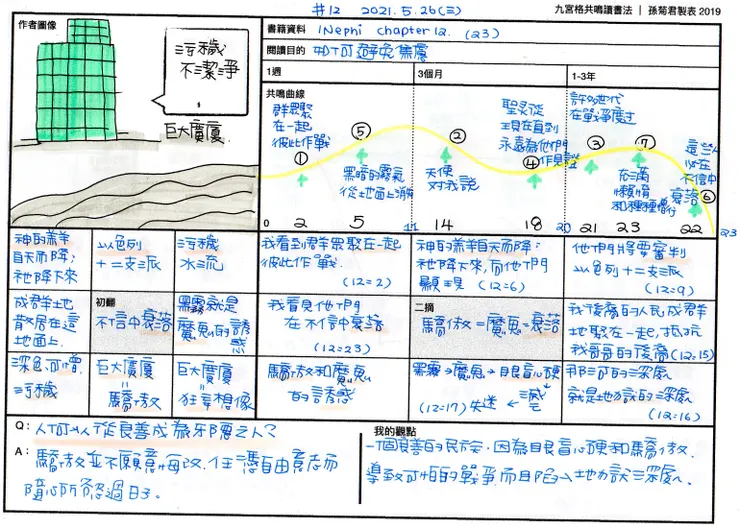 #12 2021.5.26(三)
九宮格共鳴讀書法｜孫菊君製表 2019
作者圖像
書籍資料 1Nephi chapter 12. (23)
閱讀目的 如何避免焦慮
1週
3個月
1-3年
共鳴曲線
污穢
不潔淨
巨大廣廈
群眾聚
在一起
彼此作戰
①
⑤
黑暗的霧氣
從地面上消
②
天使
對我說
聖靈從
現在直到
永遠為他們
④作見證
許多世代
在戰爭度過
③
⑦
充滿
懶惰
和種種
這些人
不信中
衰落
⑥
0 2 5 11 14 18 20 21 23 22 23
神的羔羊
自天而降；
祂降下來
以色列
十二支派
污穢
水流
我看到群眾聚在一起
彼此作戰.
(12=2)
神的羔羊自天而降；
祂降下來,而他們
顯現 (12=6)
他們將要審判
以色列十二支派
(12=9)
成群地
散居在這
地面上.
初翻
不信中衰落
黑霧就是
魔鬼的誘
惑
我看見他們
在不信中衰落
(12=23)
二摘
驕傲=魔鬼=衰落
我後裔的人民成群
地聚在一起,抵抗
我哥哥的後裔(12=15)
深色可憎
污穢
巨大廣廈
=
驕傲
巨大廣廈
=
狂妄想像
驕傲和魔鬼
的誘惑
黑霧→魔鬼→眼盲心硬
(12=17) 失迷 ← 滅亡
那河的深處
就是地獄的深處
(12=16)
Q：人何以從良善成為邪惡之人?
A：驕傲並不願意悔改.任憑自由意志而
隨心所欲過日子.
我的觀點
一個良善的民族，因為眼盲心硬和驕傲.
導致可怕的戰爭而且陷入地獄深處.